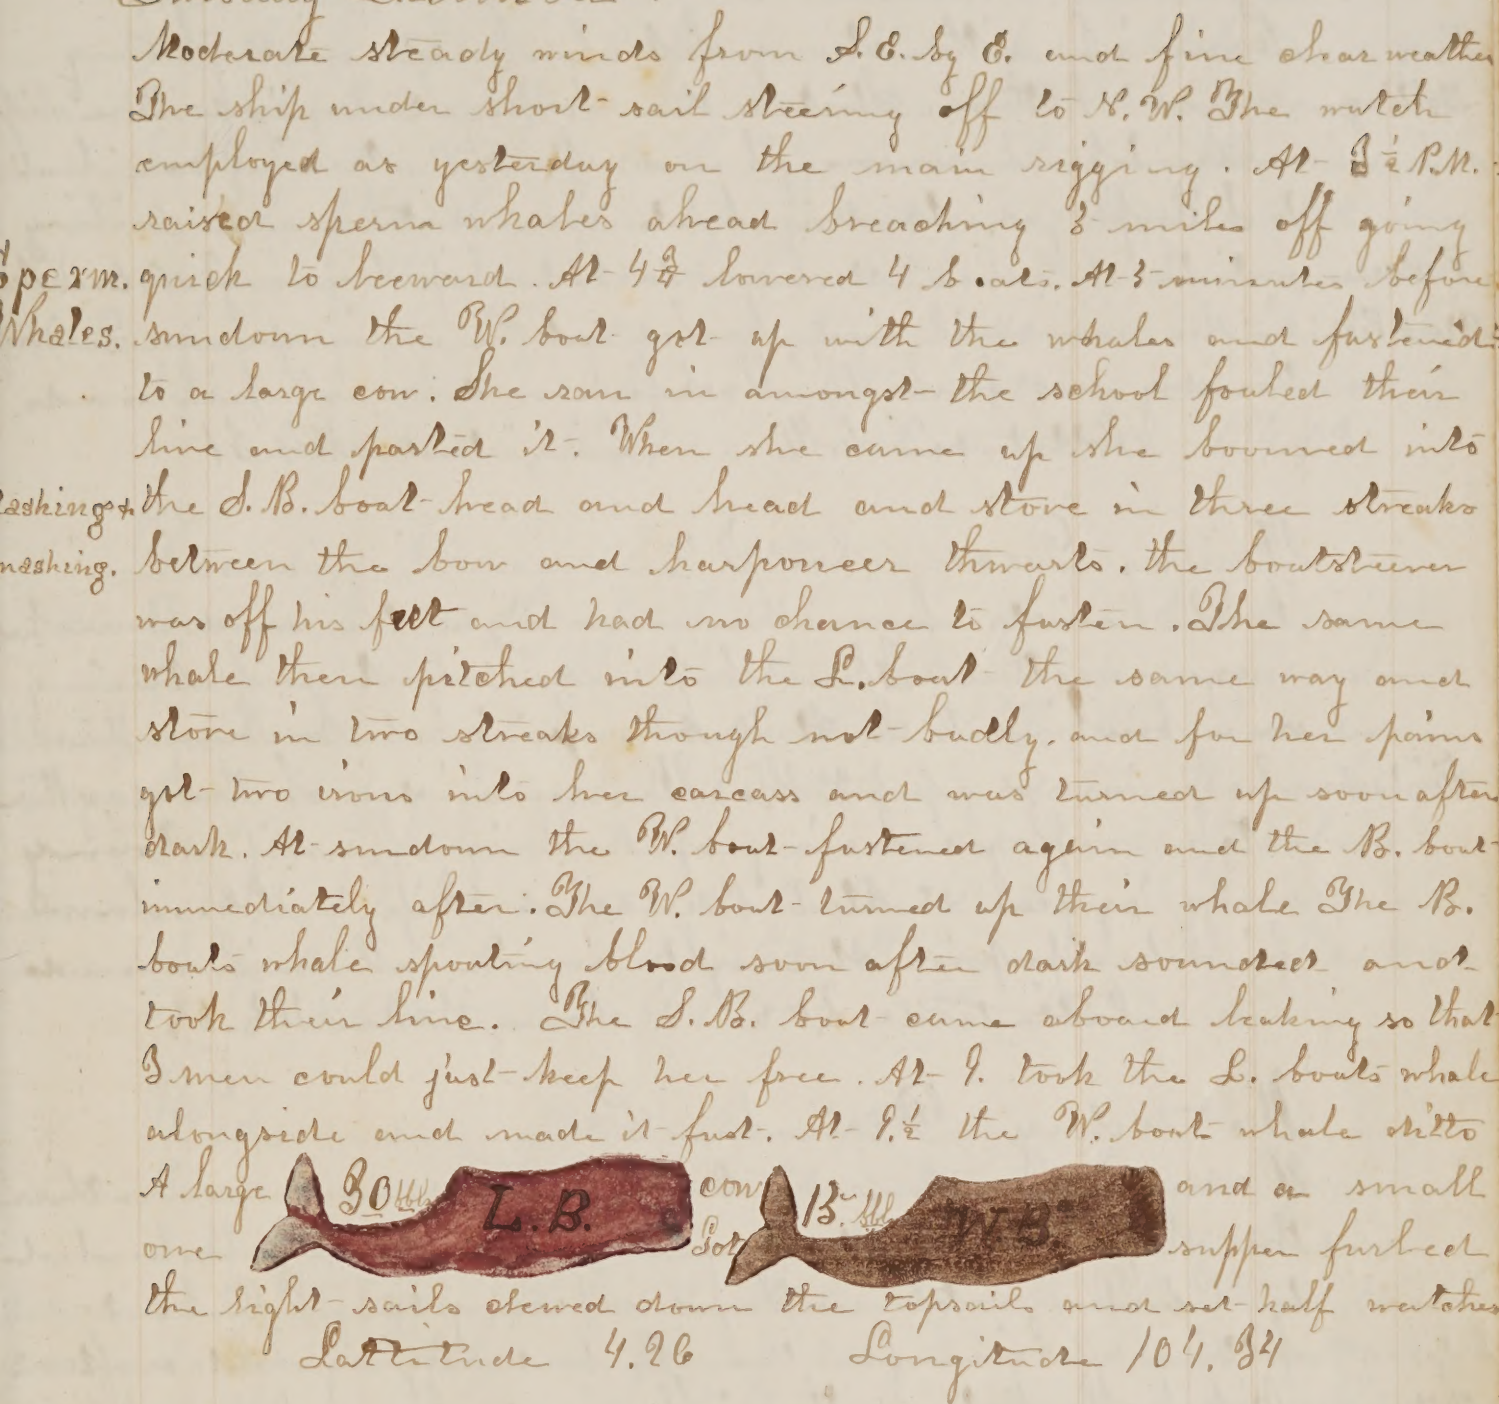 Moderate steady winds from S. E. by E. and fine clear weather
The ship under short sail steering off to N. W. The watch
employed as yesterday on the main rigging. At 3 1/2 P.M.
raised sperm whales ahead breaching 3 miles off going
Sperm. quick to leeward. At 4 3/4 lowered 4 boats. At 5 minutes before
Whales. sundown the W. boat got up with the whales and fastened
to a large cow. She ran in amongst the school fouled their
line and parted it. When she came up she boomed into
the S. B. boat head and head and stove in three streaks
between the bow and harponeer thwarts. the boatsteerer
was off his feet and had no chance to fasten. The same
whale then pitched into the L. boat the same way and
stove in two streaks though not badly. and for her pains
got two irons into her carcass and was turned up soon after
dark. At sundown the W. boat fastened again and the B. boat
immediately after. The W. boat turned up their whale The B.
boats whale spouting blood soon after dark sounded and
took their line. The S. B. boat came aboard leaking so that
3 men could just keep her free. At 9. took the L. boats whale
alongside and made it fast. At 9. 1/2 the W. boat whale ditto
A large 30 bbls L. B. cow 15 bbl W B and a small
one Got supper furled
the light sails clewed down the topsails and set half watches
Lattitude 4.26 Longitude 104.34